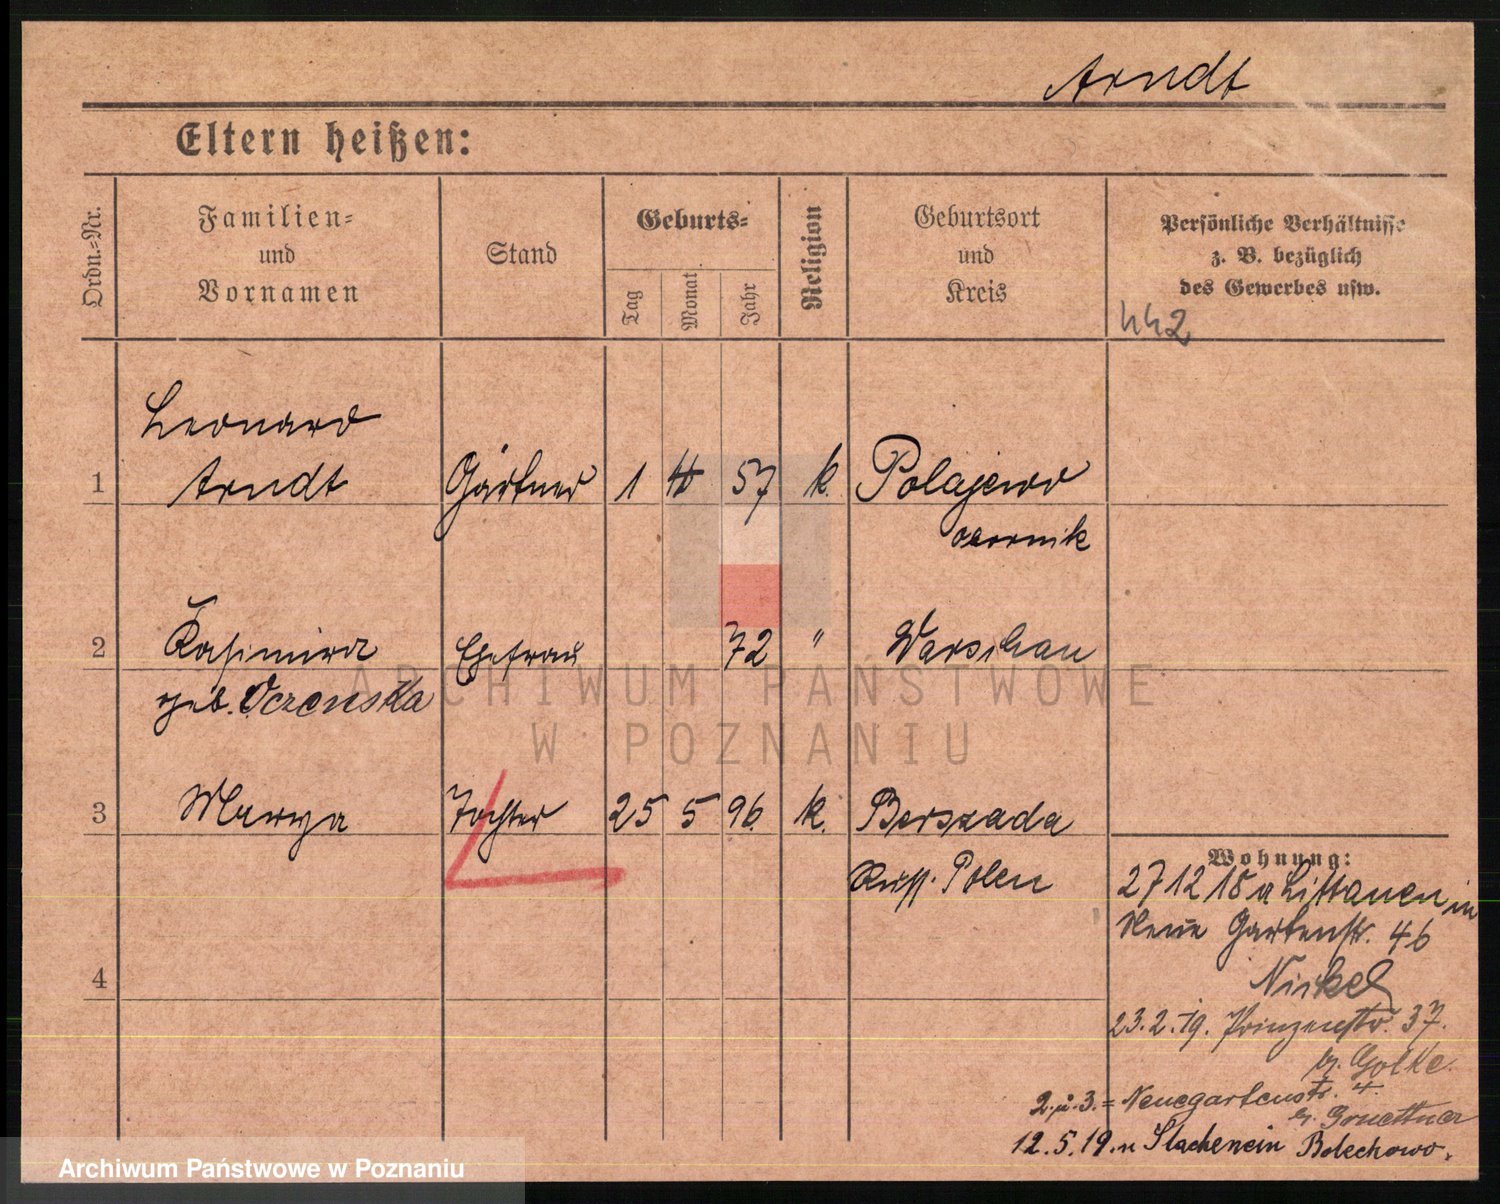 Arndt
Eltern heißen:
Ordn.-Nr.
Familien-
und
Vornamen
Stand
Geburts-
Tag
Monat
Jahr
Religion
Geburtsort
und
Kreis
Persönliche Verhältnisse
z. B. bezüglich
des Gewerbes usw.
442
Leonard
1 Arndt Gärtner 1 57 k. Polajewo
Obornik
2 Kasimira Ehefrau 72 " Warschau
geb. Oczenska
ARCHIWUM PAŃSTWOWE
W POZNANIU
3 Marya Tochter 25 5 96 k. Berszada
Russ. Polen
Wohnung:
27 12 18 a Littauen in
Neue Gartenstr. 46
Nickel
4
23.2.19. Prinzenstr. 37.
b. Golke.
2. u. 3. = Neuegartenstr. 4.
b.
12.5.19. n Bolechowo.
Archiwum Państwowe w Poznaniu